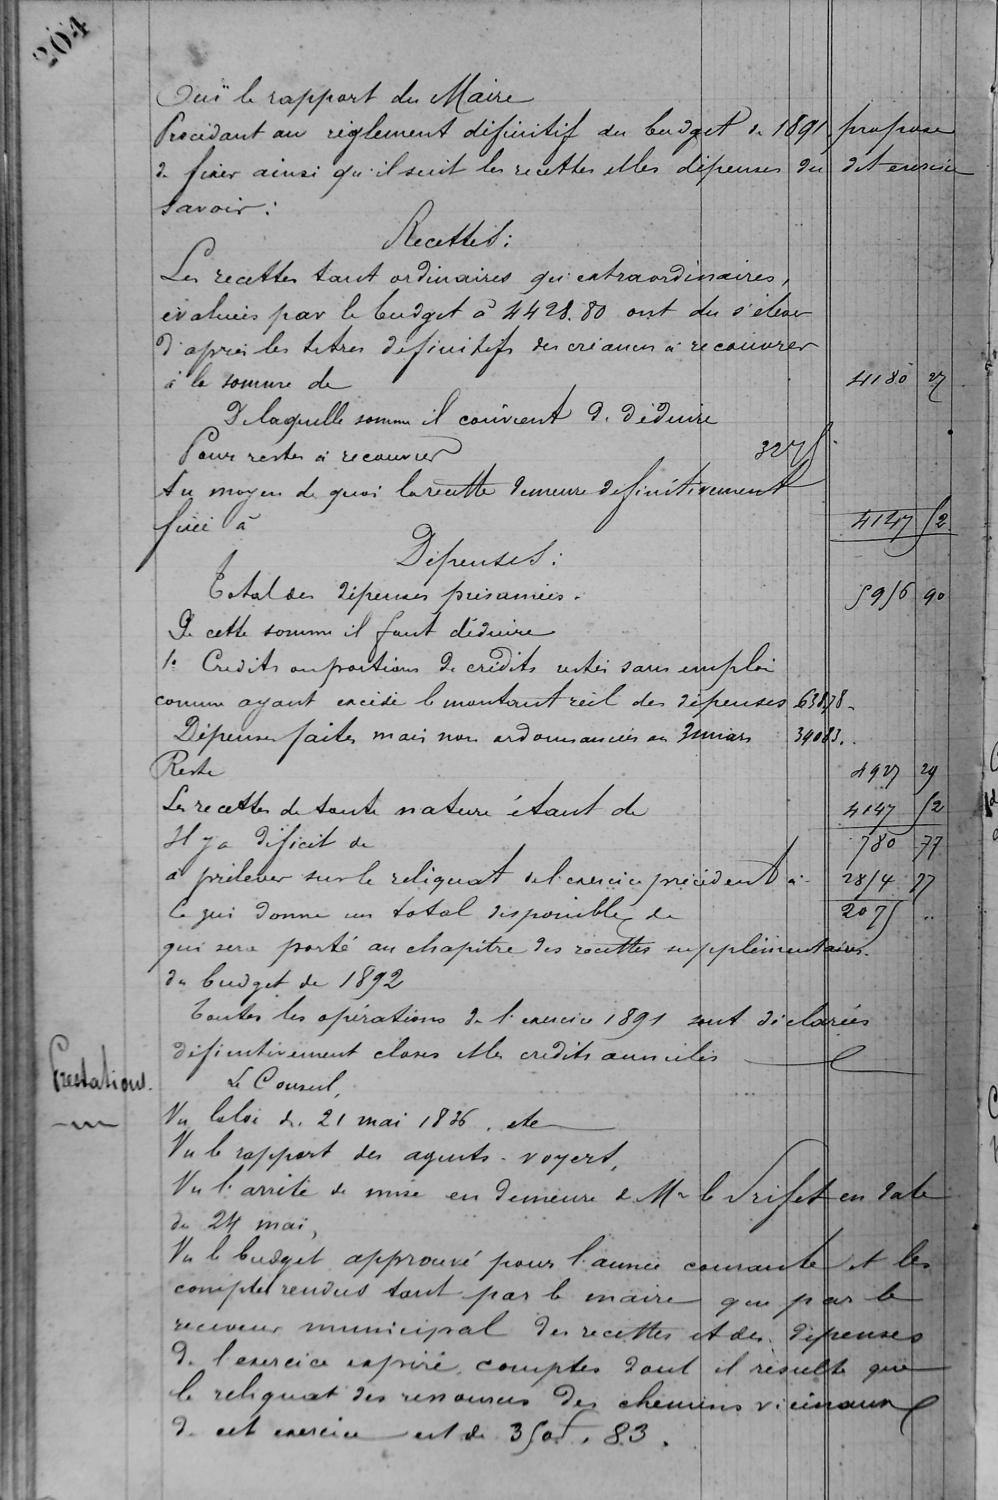 204
Ouï le rapport du Maire
Procédant au règlement définitif du budget de 1891 propose
de fixer ainsi qu'il suit les recettes et les dépenses du dit exercice
savoir :
Recettes :
Les recettes tant ordinaires qu'extraordinaires,
évaluées par le budget à 4428.80 ont du s'élever
d'après les titres définitifs des créances à recouvrer
à la somme de 4180 27
De laquelle somme il convient de déduire
Pour restes à recouvrer 3275
Au moyen de quoi la recette demeure définitivement
fixée à 4147 52
Dépenses :
Total des dépenses présumées. 5956 90
De cette somme il faut déduire
1° Crédits ou portions de crédits restés sans emploi
comme ayant excédé le montant réel des dépenses 638,78
Dépenses faites mais non ordonnancées au 31 mars 390 83
Reste 4927 29
Les recettes de toute nature étant de 4147 52
Il y a déficit de 780 77
à prélever sur le reliquat de l'exercice précédent à 2854 77
ce qui donne un total disponible de 2075 ..
qui sera porté au chapitre des recettes supplémentaires
du budget de 1892
Toutes les opérations de l'exercice 1891 sont déclarées
définitivement closes et les crédits annulés
Prestations.
Le Conseil,
Vu la loi du 21 mai 1836, etc
Vu le rapport des agents-voyers,
Vu l'arrêté de mise en demeure de Mr le Préfet en date
du 24 mai,
Vu le budget approuvé pour l'année courante et les
comptes rendus tant par le maire que par le
receveur municipal des recettes et des dépenses
de l'exercice expiré, comptes dont il résulte que
le reliquat des ressources des chemins vicinaux
de cet exercice est de 3505.83.